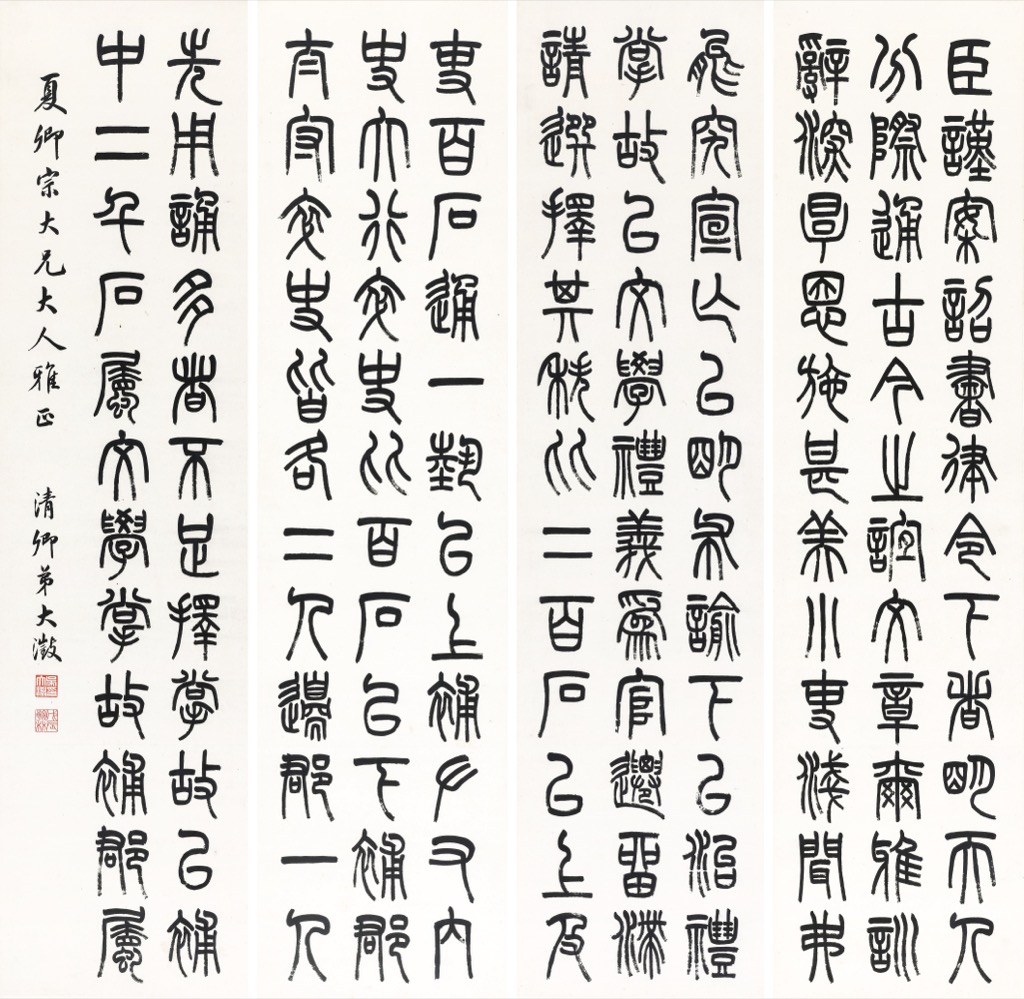 臣謹案詔書律令下者明天人
分際通古今之誼文章爾雅訓
辭深厚恩施甚美小吏淺聞弗
能究宣亡以明布諭下以治禮
掌故以文學禮義爲官遷留滯
請選擇其秩比二百石以上及
吏百石通一藝以上補左右內
史大行卒史比百石以下補郡
太守卒史皆各二人邊郡一人
先用誦多者不足擇掌故以補
中二千石屬文學掌故補郡屬
夏卿宗大兄大人雅正 清卿弟大澂